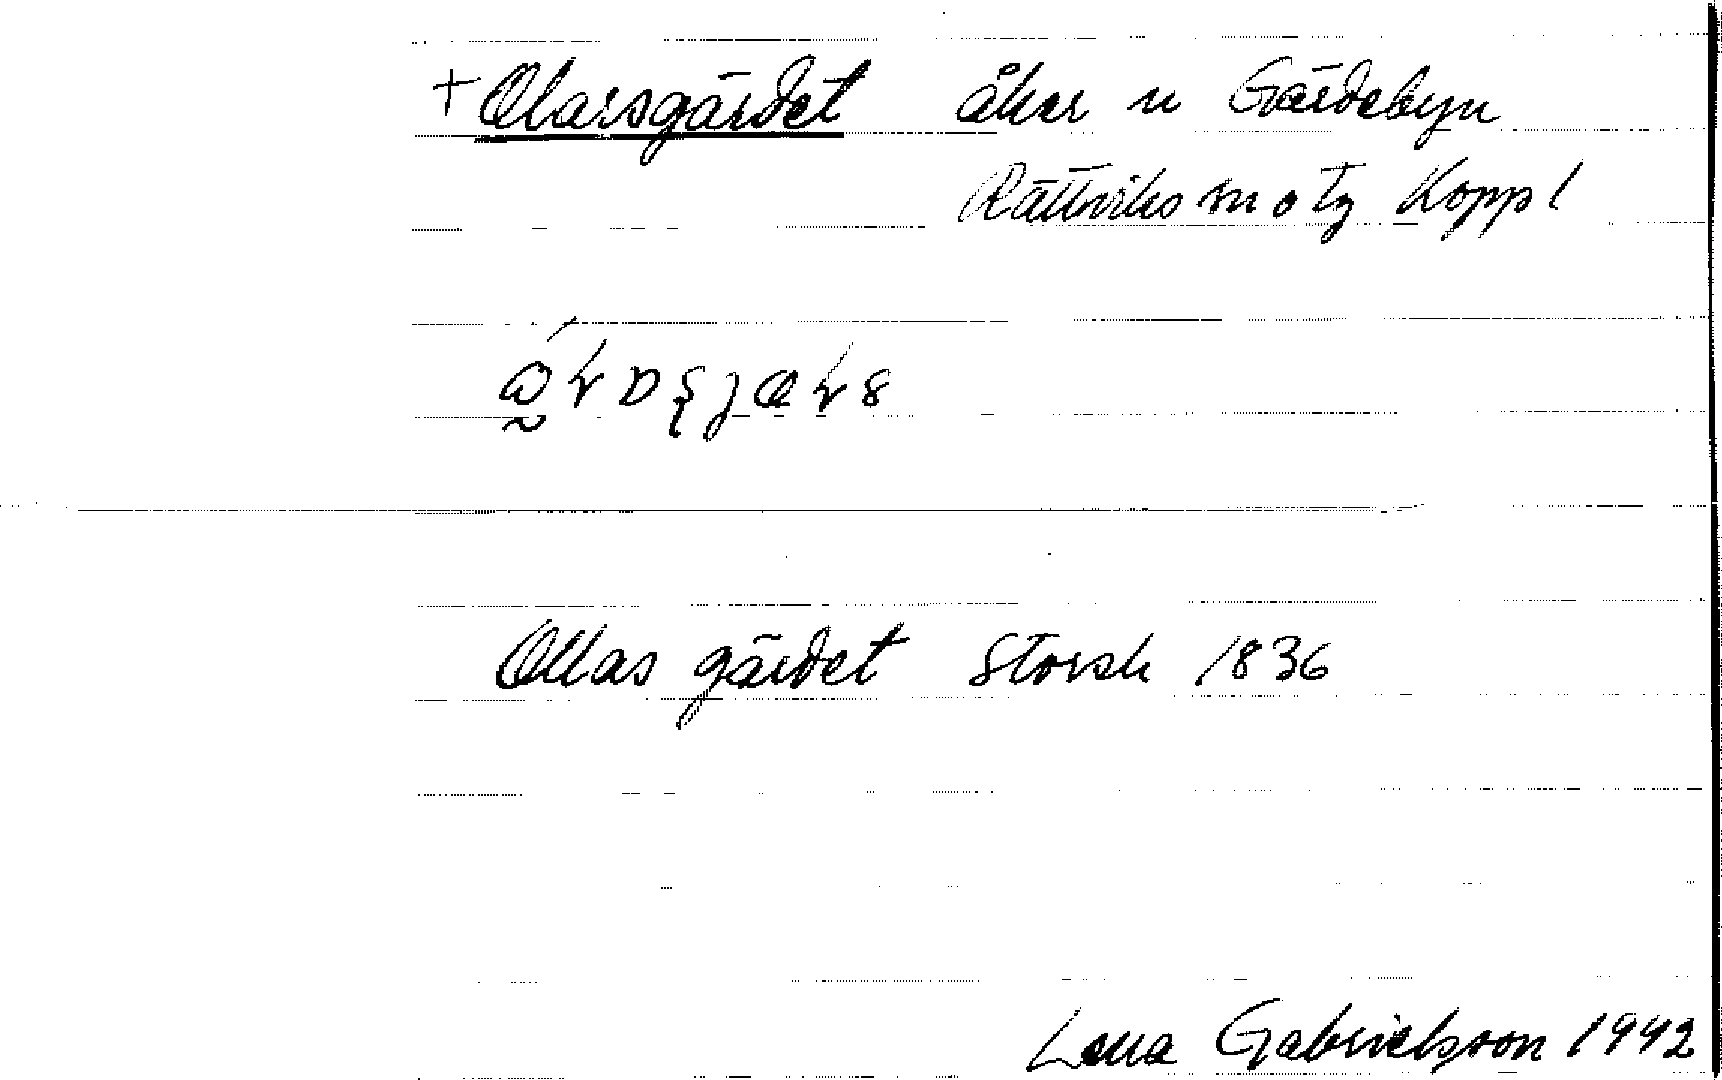 + Olarsgärdet åker n Gärdebyn
Rättviks m o tg Koppl
Ollas gärdet Storsk 1836
Lena Gabrielsson 1942